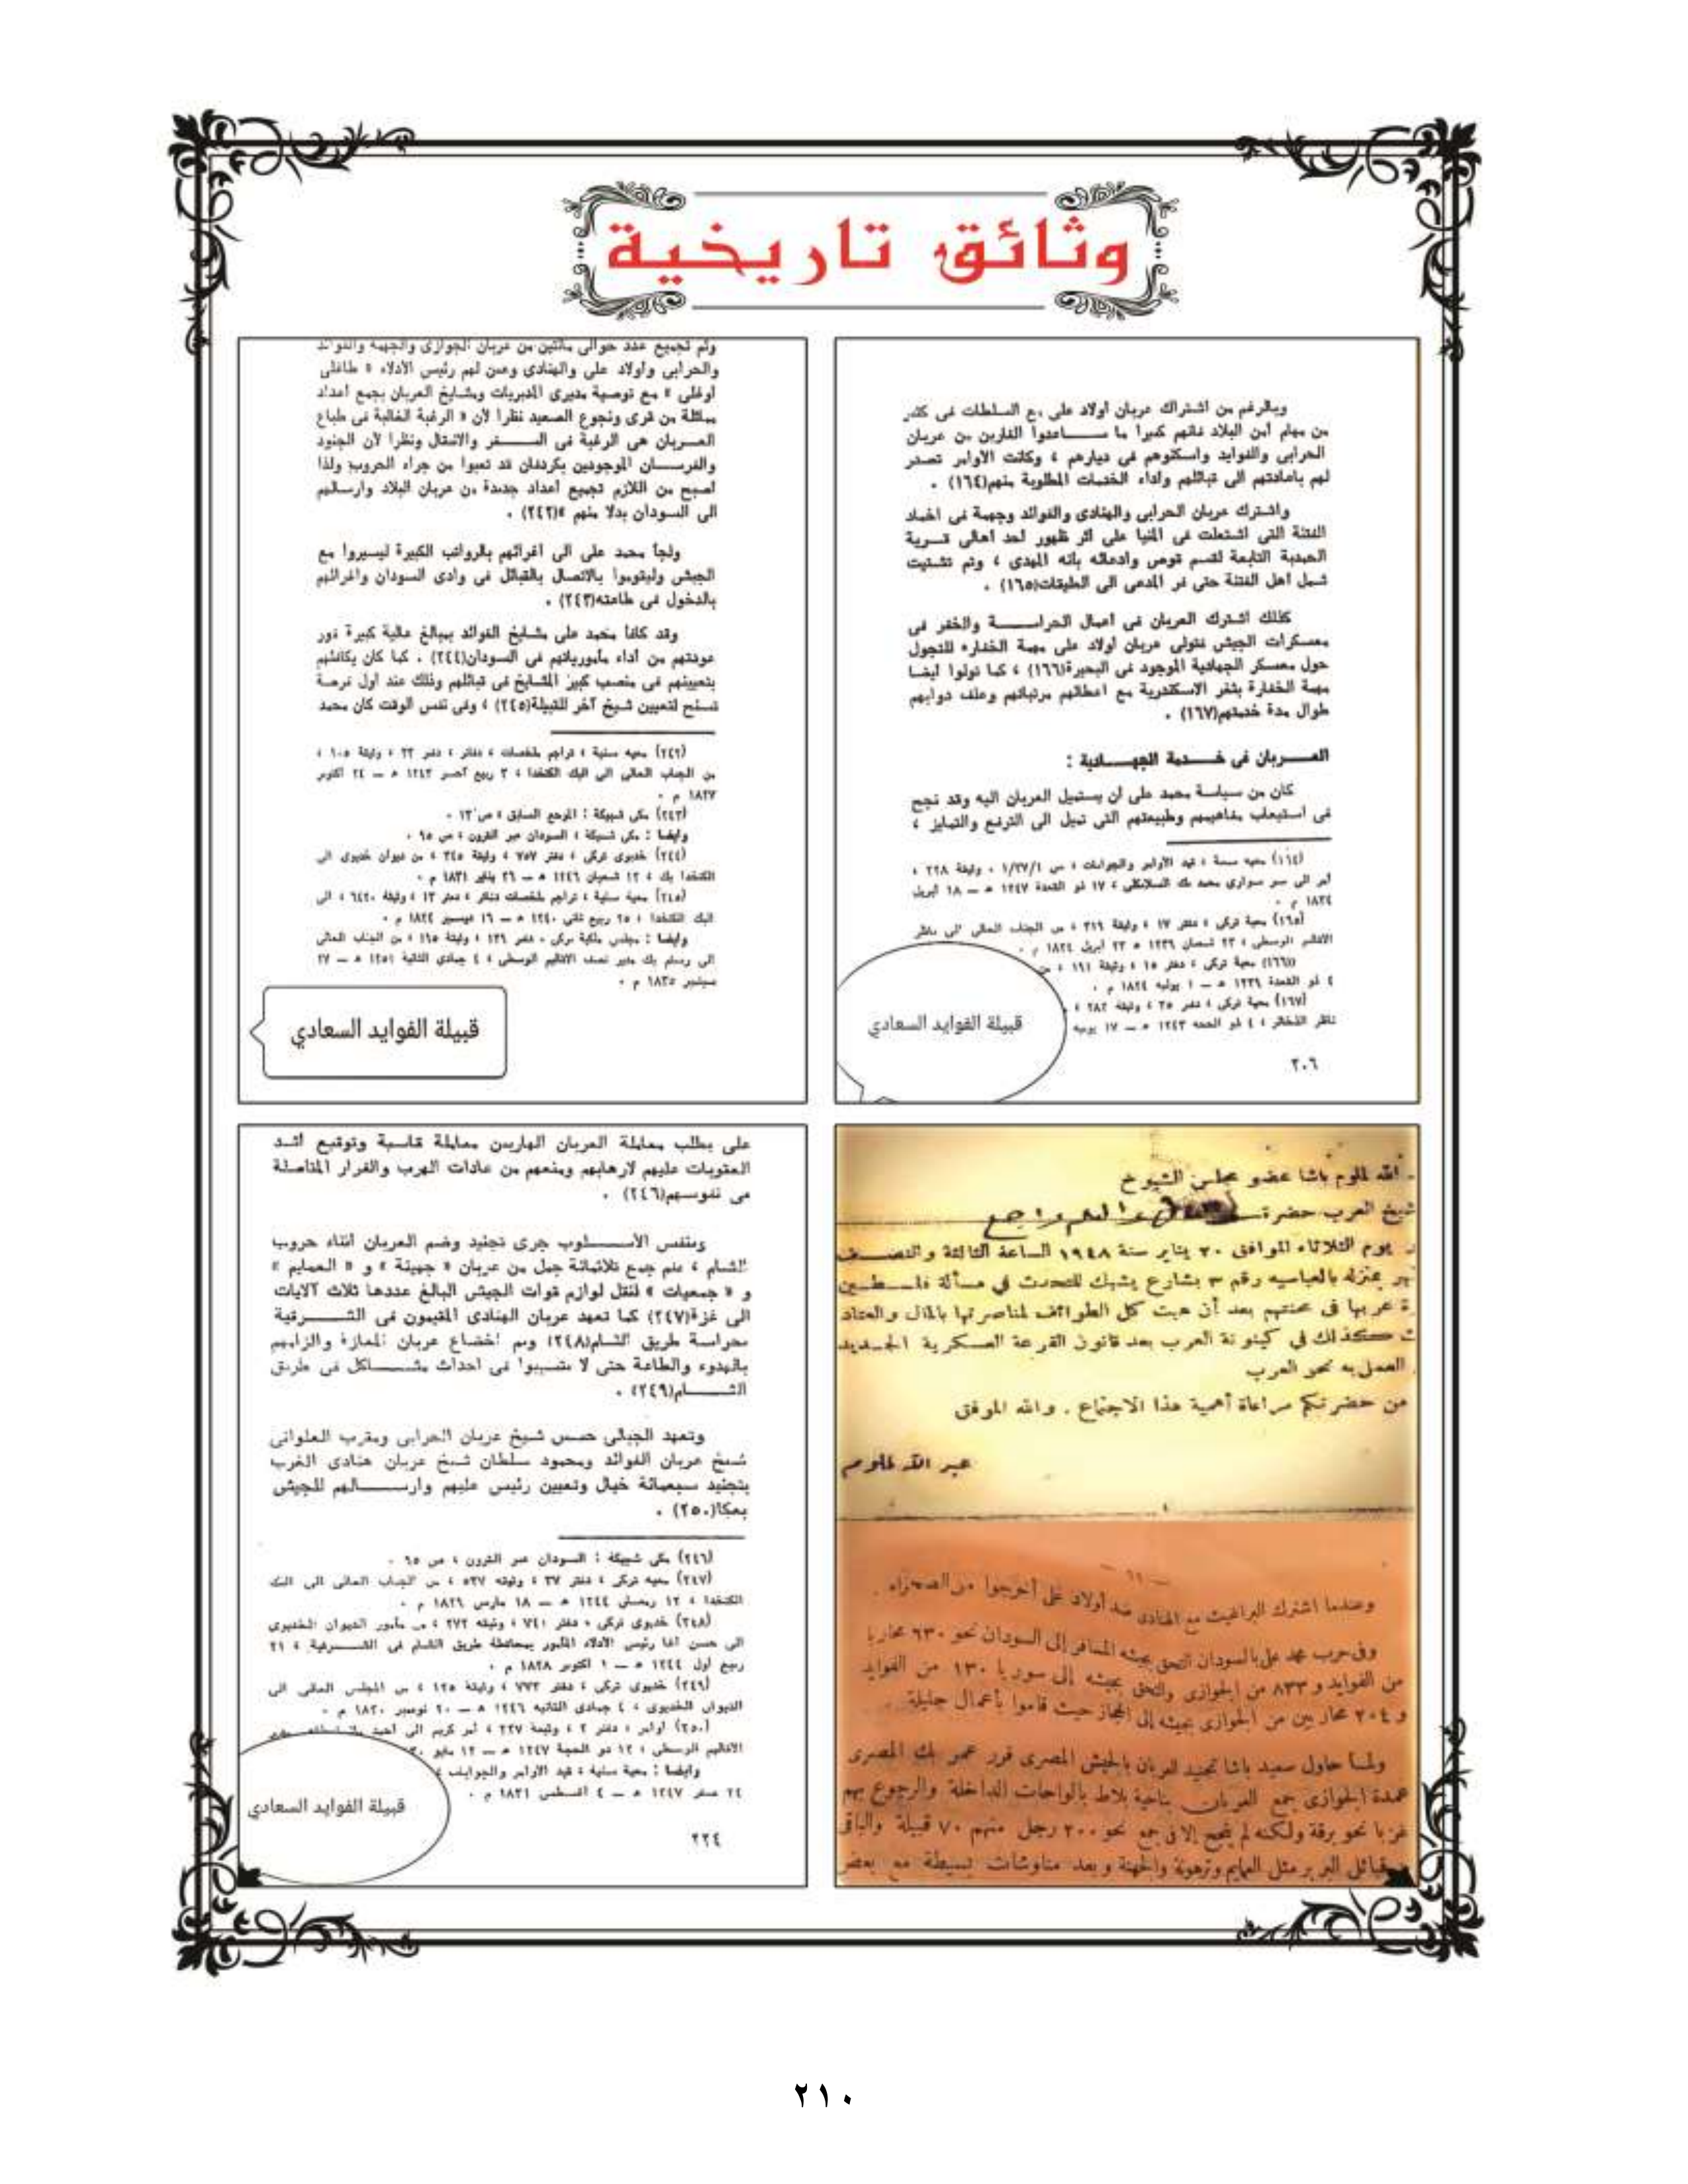 وثائق تاريخية
وبالرغم من اشتراك عربان أولاد على مع السلطات فى كثير
من مهام أمن البلاد فانهم كثيرا ما ساعدوا الفارين من عربان
الحرابى والفوايد واسكنوهم فى ديارهم ، وكانت الأوامر تصدر
لهم باعادتهم الى قبائلهم وأداء الخدمات المطلوبة منهم(١٦٤) .
واشترك عربان الحرابى والهنادى والفوائد وجهمة فى اخماد
الفتنة التى اشتعلت فى المنيا على أثر ظهور أحد أهالى قرية
التابعة لقسم قوص وادعائه بأنه المهدى ، وتم تشتيت
شمل أهل الفتنة حتى فر المدعى الى الطبقات(١٦٥) .
كذلك اشترك العربان فى أعمال الحراسة والخفر فى
معسكرات الجيش فتولى عربان أولاد على مهمة الخفارة للتجول
حول معسكر الجهادية الموجود فى البحيرة(١٦٦) ، كما تولوا أيضا
مهمة الخفارة بثغر الاسكندرية مع اعطائهم مرتباتهم وعلف دوابهم
طوال مدة خدمتهم(١٦٧) .
العربان فى خدمة الجهادية :
كان من سياسة محمد على أن يستميل العربان اليه وقد نجح
فى استيعاب مفاهيمهم وطبيعتهم التى تميل الى الترفع والتمايز ،
(١٦٤) معية سنية ، قيد الأوامر والجوابات ، س ١/٣٧/١ ، وثيقة ٢٢٨ ،
أمر الى سر سوارى محمد بك السلانكلى ، ١٧ ذو القعدة ١٢٤٧ هـ — ١٨ ابريل
(١٦٥) معية تركى ، دفتر ١٧ ، وثيقة ٣١٦ ، من الجناب العالى الى ناظر
الأقاليم الوسطى ، ٢٣ شعبان ١٢٣٩ هـ ٢٣ ابريل ١٨٢٤ م .
(١٦٦) معية تركى ، دفتر ١٥ ، وثيقة ١٩١ ، من
٤ ذو القعدة ١٢٣٩ هـ — ١ يوليه ١٨٢٤ م .
(١٦٧) معية تركى ، دفتر ٣٥ ، وثيقة ٢٨٢ ،
ناظر الذخائر ، ٤ ذو الحجة ١٢٤٣ هـ — ١٧ يونيه
قبيلة الفوايد السعادي
٢٠٦
وتم تجميع عدد حوالى مائتين من عربان الجوازى والجهمة والفوائد
والحرابى وأولاد على والهنادى وعين لهم رئيس الأدلاء « طاغلى
أوغلى » مع توصية مديرى المديريات ومشايخ العربان بجمع أعداد
مماثلة من قرى ونجوع الصعيد نظرا لأن « الرغبة الغالبة فى طباع
العربان هى الرغبة فى السفر والانتقال ونظرا لأن الجنود
والفرسان الموجودين بكردفان قد تعبوا من جراء الحروب ولذا
أصبح من اللازم تجميع أعداد جديدة من عربان البلاد وارسالهم
الى السودان بدلا منهم »(٢٤٢) .
ولجأ محمد على الى اغرائهم بالرواتب الكبيرة ليسيروا مع
الجيش وليقوموا بالاتصال بالقبائل فى وادى السودان واغرائهم
بالدخول فى طاعته(٢٤٣) .
وقد كافأ محمد على مشايخ الفوائد بمبالغ مالية كبيرة فور
عودتهم من أداء مأمورياتهم فى السودان(٢٤٤) . كما كان يكافئهم
بتعيينهم فى منصب كبير المشايخ فى قبائلهم وذلك عند أول فرصة
تسنح لتعيين شيخ آخر للقبيلة(٢٤٥) ، وفى نفس الوقت كان محمد
(٢٤٢) معية سنية ، تراجم ملخصات ، دفاتر ، دفتر ٢٣ ، وثيقة ١٠٥ ،
من الجناب العالى الى البك الكتخدا ، ٣ ربيع آخر ١٢٤٣ هـ — ٢٤ أكتوبر
١٨٢٧ م .
(٢٤٣) مكى شبيكة : المرجع السابق ، ص ١٣ .
وأيضا : مكى شبيكة ، السودان عبر القرون ، ص ٦٥ .
(٢٤٤) خديوى تركى ، دفتر ٧٥٧ ، وثيقة ٣٤٥ ، من ديوان خديوى الى
الكتخدا بك ، ١٢ شعبان ١٢٤٦ هـ — ٢٦ يناير ١٨٣١ م .
(٢٤٥) معية سنية ، تراجم ملخصات دفاتر ، دفتر ١٣ ، وثيقة ٦٤٢٠ ، الى
البك الكتخدا ، ٢٥ ربيع ثانى ١٢٤٠ هـ — ١٦ ديسمبر ١٨٢٤ م .
وأيضا : مجلس ملكية تركى ، دفتر ١٣٦ ، وثيقة ١٦٥ ، من الجناب العالى
الى رستم بك مدير نصف الأقاليم الوسطى ، ٤ جمادى الثانية ١٢٥١ هـ — ٢٧
سبتمبر ١٨٣٥ م .
قبيلة الفوايد السعادي
الله لملوم باشا عضو مجلس الشيوخ
شيخ العرب حضرة
يوم الثلاثاء الموافق ٢٠ يناير سنة ١٩٤٨ الساعة الثالثة والنصف
بمنزله بالعباسيه رقم ٣ بشارع يشبك للتحدث في مسألة فلسطين
عربها فى محنتهم بعد أن هبت كل الطوائف لمناصرتها بالمال والعتاد
كذلك في كينونة العرب بعد قانون القرعة العسكرية الجديد
العمل به نحو العرب
من حضرتكم مراعاة أهمية هذا الاجتماع . والله الموفق
عبد الله لملوم
وعندما اشترك البراغيث مع الهنادى ضد أولاد على أخرجوا من الصحراء .
وفى حرب محمد على بالسودان التحق بجيشه المسافر إلى السودان نحو ٦٣٠ محاربا
من الفوايد و ٨٣٣ من الجوازى والتحق بجيشه إلى سوريا ١٣٠ من الفوايد
و ٢٠٤ محاربين من الجوازى بجيشه إلى الحجاز حيث قاموا بأعمال جليلة .
ولما حاول سعيد باشا تجنيد العربان بالجيش المصرى قرر عمر بك المصرى
عمدة الجوازى جمع العربان بناحية بلاط بالواحات الداخلة والرجوع بهم
غربا نحو برقة ولكنه لم ينجح إلا فى جمع نحو ٢٠٠ رجل منهم ٧٠ قبيلة والباقى
قبائل البربر مثل العمايم وترهونة والجهنة وبعد مناوشات بسيطة مع بعض
على يطلب معاملة العربان الهاربين معاملة قاسية وتوقيع أشد
العقوبات عليهم لارهابهم ومنعهم من عادات الهرب والفرار المتأصلة
فى نفوسهم(٢٤٦) .
وبنفس الأسلوب جرى تجنيد وضم العربان أثناء حروب
الشام ، فتم جمع ثلاثمائة جمل من عربان « جهينة » و « العمايم »
و « جمعيات » لنقل لوازم قوات الجيش البالغ عددها ثلاث آلايات
الى غزة(٢٤٧) كما تعهد عربان الهنادى المقيمون فى الشرقية
بحراسة طريق الشام(٢٤٨) وتم اخضاع عربان المعازة والزامهم
بالهدوء والطاعة حتى لا يتسببوا فى احداث مشاكل فى طريق
الشام(٢٤٩) .
وتعهد الجبالى حسن شيخ عربان الحرابى ومقرب العلوانى
شيخ عربان الفوائد ومحمود سلطان شيخ عربان هنادى الغرب
بتجنيد سبعمائة خيال وتعيين رئيس عليهم وارسالهم للجيش
بعكا(٢٥٠) .
(٢٤٦) مكى شبيكة : السودان عبر القرون ، ص ٦٥ .
(٢٤٧) معية تركى ، دفتر ٣٧ ، وثيقة ٥٢٧ ، من الجناب العالى الى البك
الكتخدا ، ١٢ رمضان ١٢٤٤ هـ — ١٨ مارس ١٨٢٩ م .
(٢٤٨) خديوى تركى ، دفتر ٧٤١ ، وثيقة ٢٧٢ ، من مأمور الديوان الخديوى
الى حسن أغا رئيس الأدلاء المأمور بمحافظة طريق الشام فى الشرقية ، ٢١
ربيع أول ١٢٤٤ هـ — ١ أكتوبر ١٨٢٨ م .
(٢٤٩) خديوى تركى ، دفتر ٧٧٣ ، وثيقة ١٢٥ ، من المجلس العالى الى
الديوان الخديوى ، ٤ جمادى الثانية ١٢٤٦ هـ — ٢٠ نوفمبر ١٨٣٠ م .
(٢٥٠) أوامر ، دفتر ٢ ، وثيقة ٢٢٧ ، أمر كريم الى أحمد
الأقاليم الوسطى ، ١٢ ذو الحجة ١٢٤٧ هـ — ١٣ مايو
وأيضا : معية سنية ، قيد الأوامر والجوابات ،
٢٤ صفر ١٢٤٧ هـ — ٤ أغسطس ١٨٣١ م .
قبيلة الفوايد السعادي
٢٢٤
٢١٠